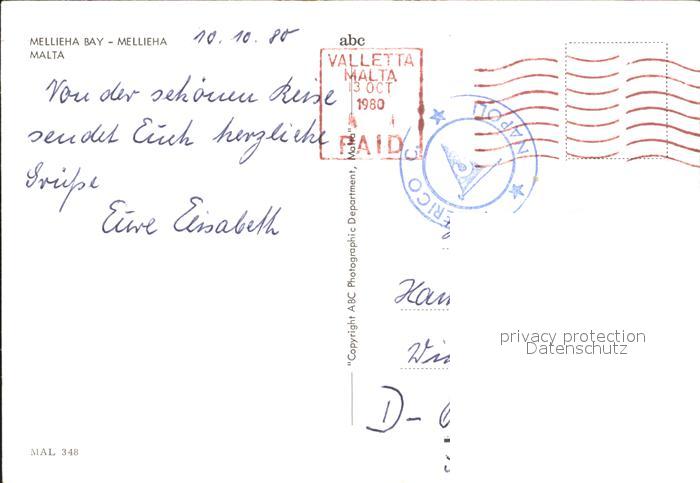 MELLIEHA BAY – MELLIEHA
MALTA
10.10.80
abc
VALLETTA
MALTA
13 OCT
1980
PAID
Von der schönen Reise
sendet Euch herzliche
Grüße
Eure Elisabeth
"Copyright ABC Photographic Department, Malta"
ERICO C.
NAPOLI
privacy protection
Datenschutz
D-
MAL 348